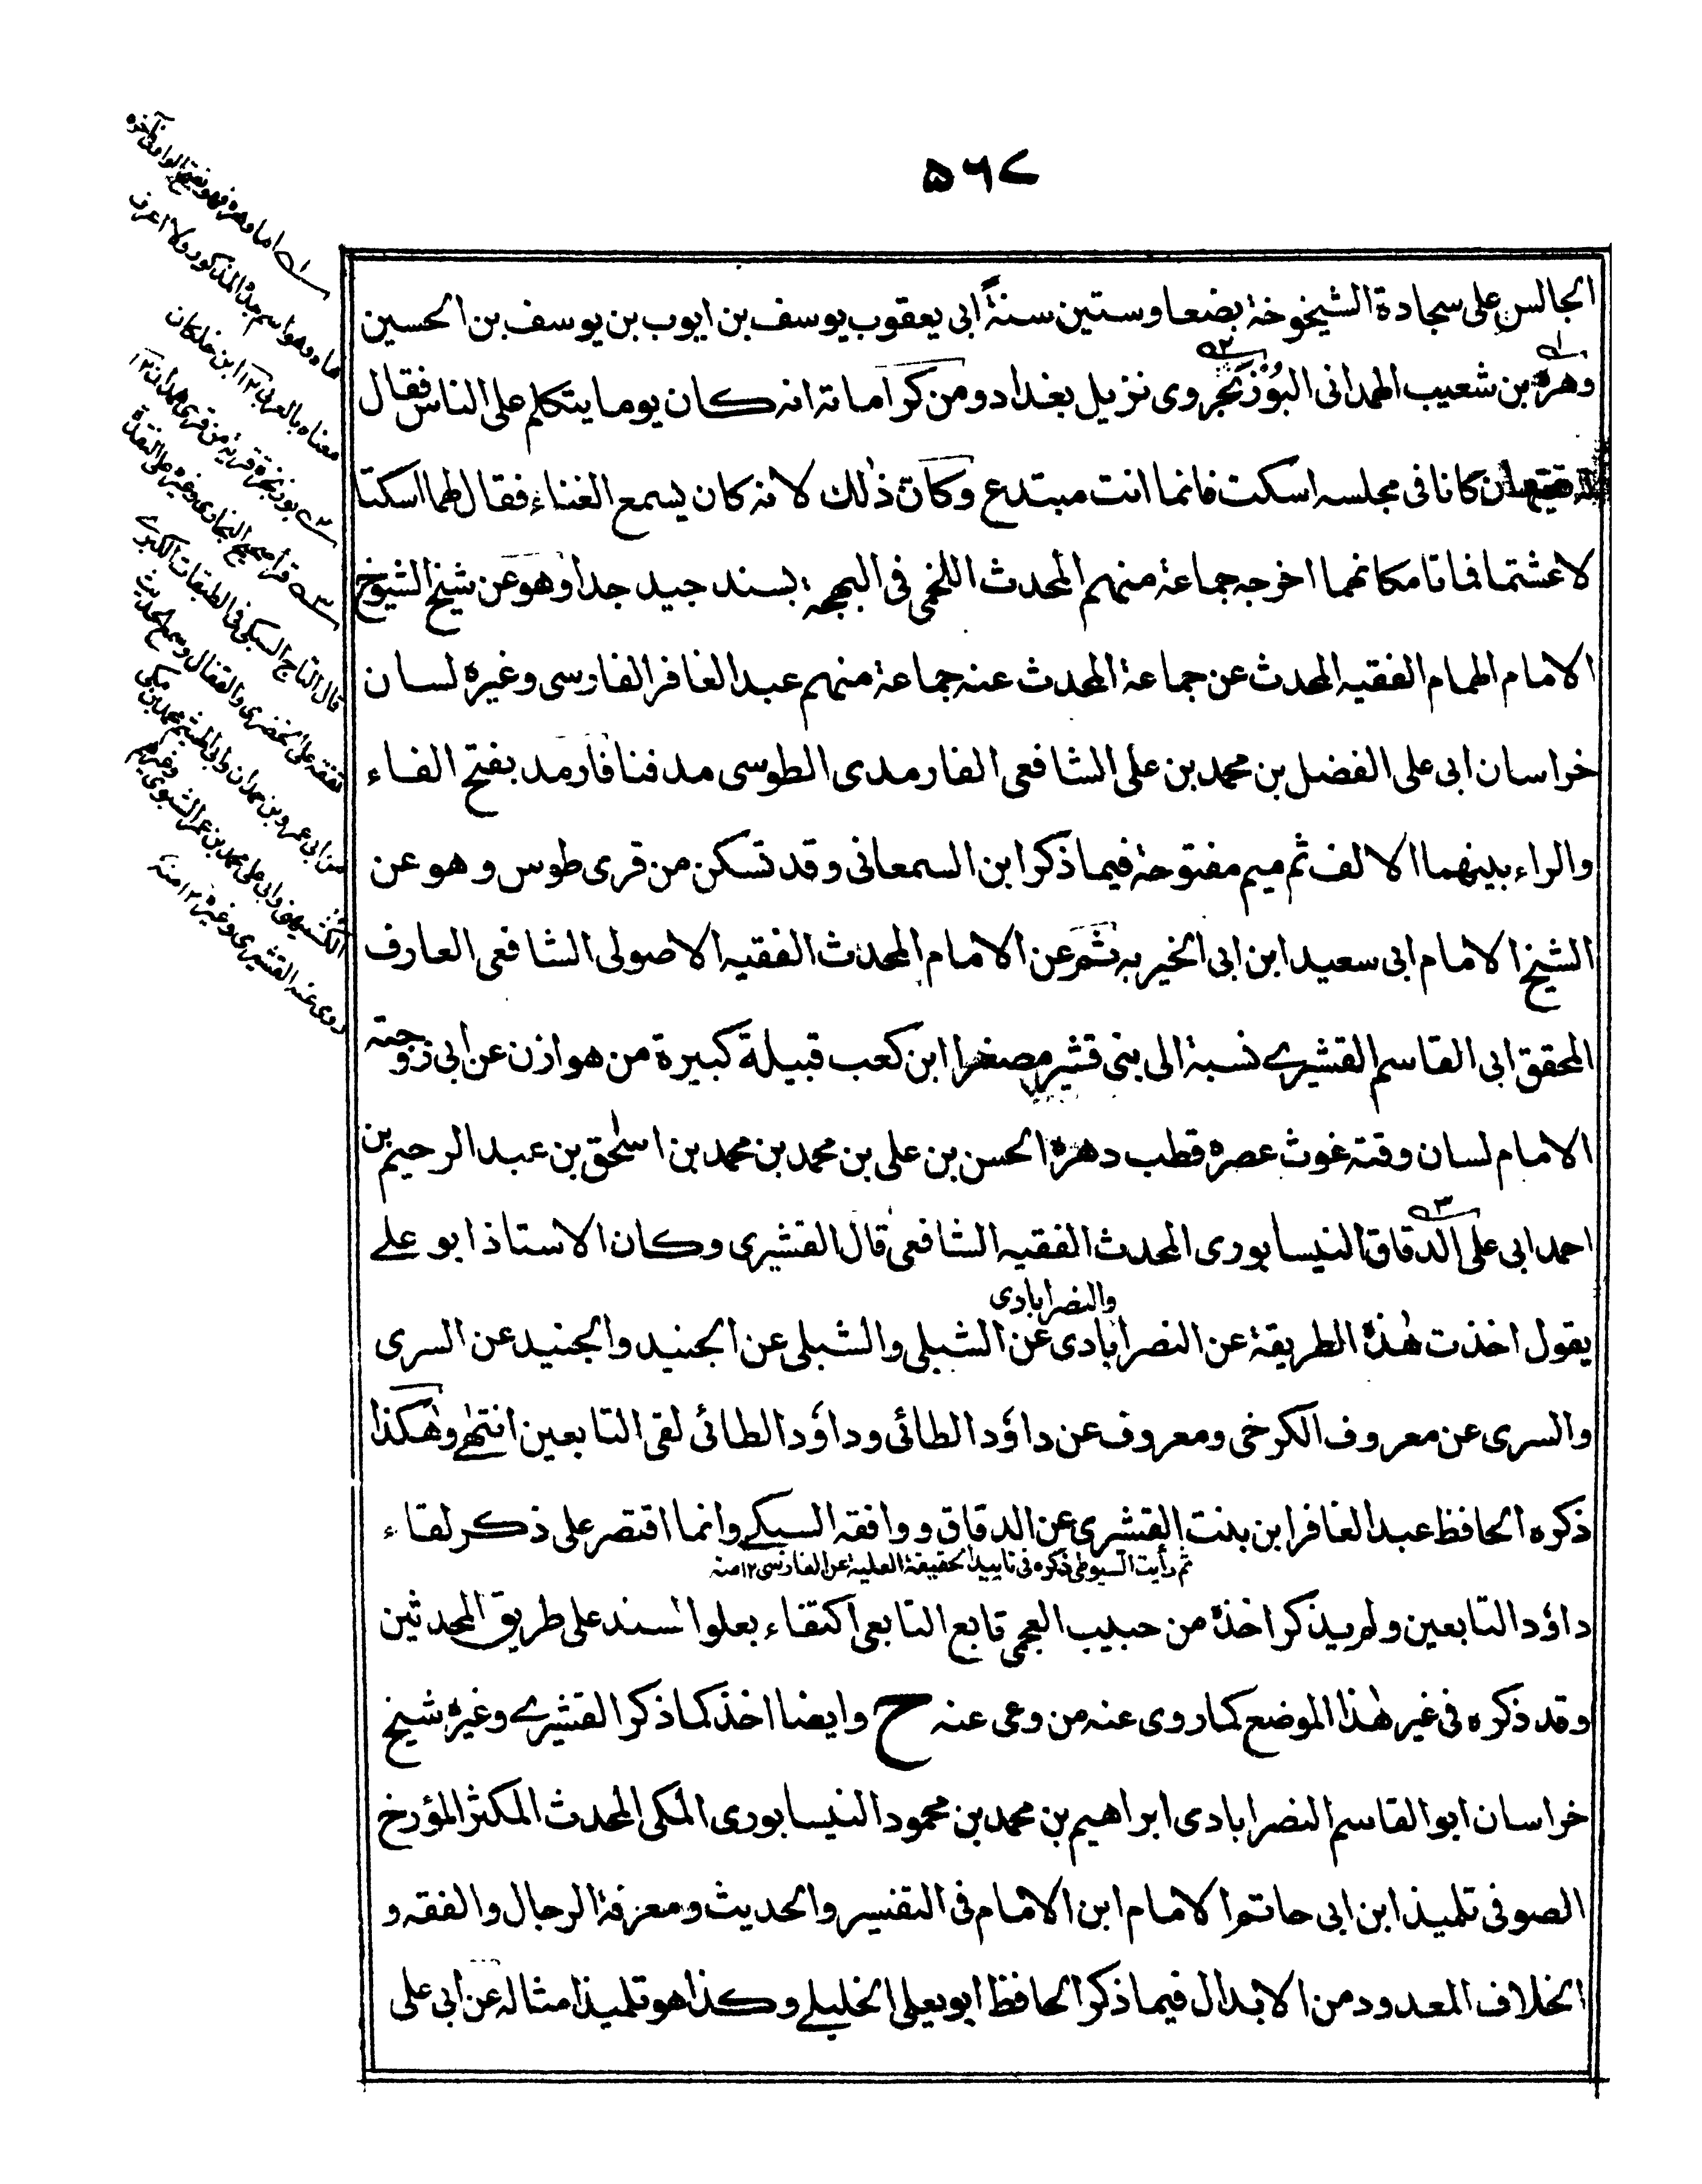 ۵۶۷
الجالس على سجادة الشيخوخة بضعا وستين سنة ابى يعقوب يوسف بن ايوب بن يوسف بن الحسين
وهرة بن شعيب الهمدانى البُوْزنَجروى نزيل بغداد ومن كراماته انه كان يوما يتكلم على الناس فقال
له فقيهان كانا فى مجلسه اسكت فانما انت مبتدع وكان ذٰلك لانه كان يسمع الغناء فقال لهما اسكتا
لا عشتما فماتا مكانهما اخرجه جماعة منهم المحدث اللخمى فى البهجة بسند جيد جدا وهو عن شيخ الشيوخ
الامام الهمام الفقيه المحدث عن جماعة المحدث عنه جماعة منهم عبد الغافر الفارسى وغيره لسان
خراسان ابى على الفضل بن محمد بن على الشافعى الفارمدى الطوسى مدفنا فارمد بفتح الفاء
والراء بينهما الالف ثم ميم مفتوحة فيما ذكر ابن السمعانى وقد تسكن من قرى طوس وهو عن
الشيخ الامام ابى سعيد ابن ابى الخير به ثم عن الامام المحدث الفقيه الاصولى الشافعى العارف
المحقق ابى القاسم القشيرے نسبة الى بنى قشير مصغرا ابن كعب قبيلة كبيرة من هوازن عن ابى زوجته
الامام لسان وقته غوث عصره قطب دهره الحسن بن على بن محمد بن محمد بن اسحٰق بن عبد الرحيم بن
احمد ابى على الدقاق ۳ النيسابورى المحدث الفقيه الشافعى قال القشيرى وكان الاستاذ ابو علے
والنصرابادى
يقول اخذت هٰذه الطريقة عن النصرابادى عن الشبلى والشبلى عن الجنيد والجنيد عن السرى
والسرى عن معروف الكرخى ومعروف عن داؤد الطائى وداؤد الطائى لقى التابعين انتهٰے وهٰكذا
ذكره الحافظ عبد الغافر ابن بنت القشيرى عن الدقاق ووافقه السبكے وانما اقتصر على ذكر لقاء
ثم رأيت السيوطى ذكره فى تاييد الحقيقة العلية عن الفارسى ۱۲ منه
داؤد التابعين ولم يذكر اخذه من حبيب العجمى تابع التابعى اكتفاء بعلو السند على طريق المحدثين
وقد ذكره فى غير هٰذا الموضع كما روى عنه من وعى عنه ح وايضا اخذ كما ذكر القشيرے وغيره شيخ
خراسان ابو القاسم النصرابادى ابراهيم بن محمد بن محمود النيسابورى المكى المحدث المكثر المؤرخ
الصوفى تلميذ ابن ابى حاتم الامام ابن الامام فى التفسير والحديث ومعرفة الرجال والفقه و
الخلاف المعدود من الابدال فيما ذكر الحافظ ابو يعلى الخليلے وكذا هو تلميذ امثاله عن ابى على
۱ اما وهرة فهو بفتح الواو وفى آخره
هاء وهو اسم جد المذكور ولا اعرف
معناه بالعربى ۱۲ ابن خلكان
۲ بوزنجرد قرية من قرى همدان ۱۲
۳ قرأ صحيح البخارى وغيره على الثقة
قال التاج السبكى فى الطبقات الكبرے
تفقه على الخضرى والقفال وسمع الحديث
من ابى عمرو بن حمدان وابى الهيثم محمد بن مكى
الكشميهنى وابى على محمد بن عمر الشبوى وغيرهم
روى عنه القشيرى وغيره ۱۲ منه